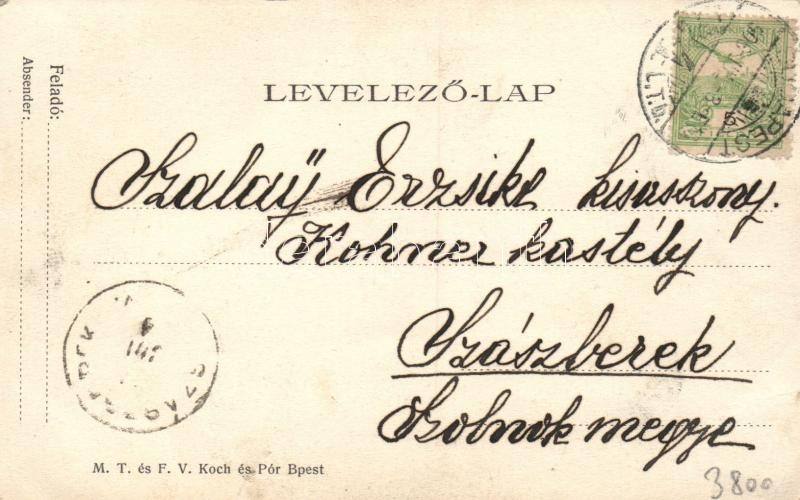 Feladó:
Absender:
LEVELEZŐ-LAP
Szalaÿ Erzsike kisasszony.
Kohner kastély
Szászberek
Szolnok megye
M. T. és F. V. Koch és Pór Bpest
3800